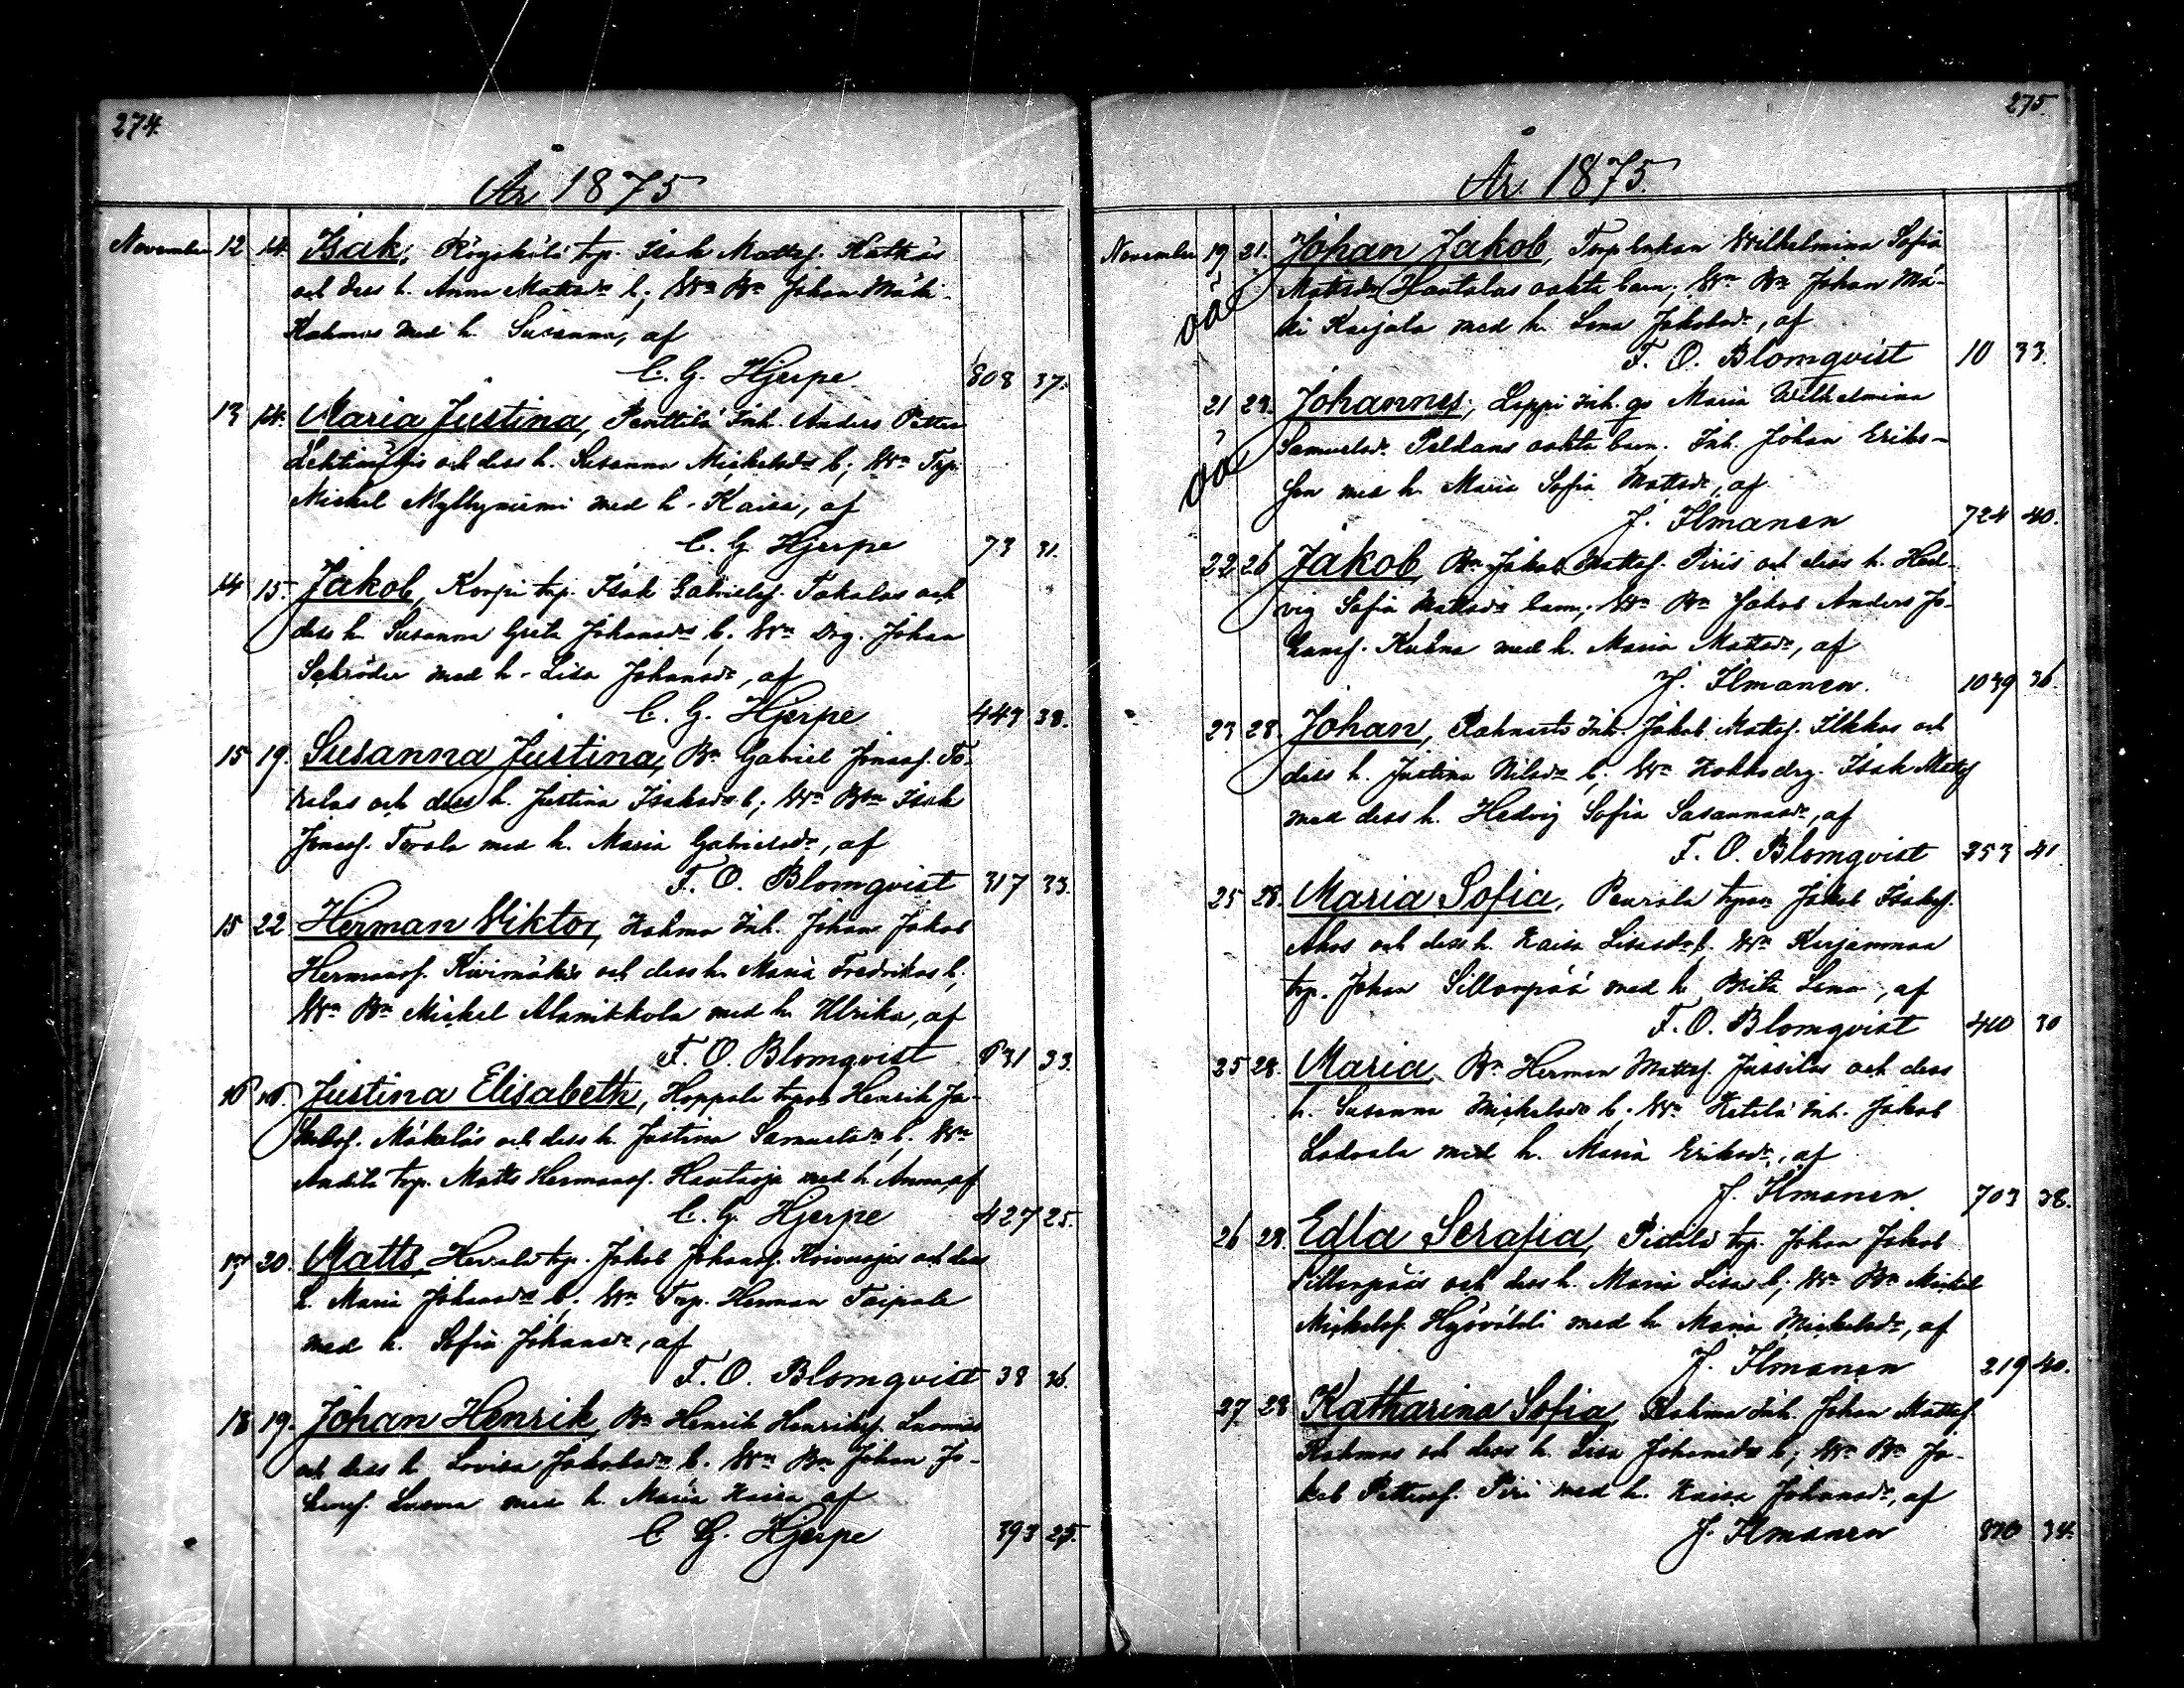 274.
År 1875
November 12 14. Isak, Röyskölä trp. Isak Mattss. Katkas
och dess h. Anna Mattsdr b; Wn Bn Johan Mäki-
Kahmas med h. Susanna, af
C. G. Hjerpe 808 37.
13 14. Maria Justina, Penttilä Inh. Anders Petter
och dess h. Susanna Mickelsdr b; Wn Trp.
Mickel Myllyniemi med h. Kaisa, af
C. G. Hjerpe 73 31.
14 15. Jakob, Korpi trp. Isak Gabrielss. Takalas och
dess h. Susanna Greta Johansdr b. Wn Drg. Johan
Schröder med h. Lisa Johansdr, af
C. G. Hjerpe 443 38.
15 19. Susanna Justina, Bn Gabriel Jonass. To-
ralas och dess h. Justina Isaksdr b; Wn Bn Isak
Jonass. Torala med h. Maria Gabrielsdr, af
F. O. Blomqvist 317 33.
15 22 Herman Viktor, Kahma Inh. Johan Jakob
Hermanss. Kivimäkis och dess h. Maria Fredrikas b.
Wn Bn Mickel Alanikkola med h. Ulrika, af
F. O. Blomqvist 631 33.
16 16. Justina Elisabeth, Hoppala trpson Henrik Ja-
kobss. Mäkeläs och dess h. Justina Samuelsdr b. Wn
Anttila trp. Matts Hermanss. Hautaoja med h. Anna, af
C. G. Hjerpe 427 25.
17 20. Matts, Herrala trp. Jakob Johanss. Koivuojas och dess
h. Maria Johansdr b. Wn Trp. Herman Taipale
med h. Sofia Johansdr, af
F. O. Blomqvist 38 36.
18 19. Johan Henrik, Bn Henrik Henrikss. Luomas
och dess h. Lovisa Jakobsdr b. Wn Bn Johan Jo-
hanss. Luoma med h. Maria Kaisa af
C. G. Hjerpe 393 25.
275.
År 1875.
November 19 21. Johan Jakob, Trp.enkan Wilhelmina Sofia
oä Mattsdr Hautalas oäkta barn; Wn Bn Johan Mä-
ki Karjala med h. Lena Jakobsdr, af
F. O. Blomqvist 10 33.
21 23. Johannes, Lappi Inh. qp Maria Wilhelmina
oä Samuelsdr Peldans oäkta barn. Inh. Johan Eriks-
son med h. Maria Sofia Mattsdr, af
J. Ilmanen 724 40.
22 26 Jakob, Bn Jakob Mattss. Piris och dess h. Hed-
vig Sofia Mattsdr barn; Wn Bn Jakob Anders Jo-
hanss. Kuhna med h. Maria Mattsdr, af
J. Ilmanen. 1039 36.
23 28. Johan, Rahnasto Inh. Jakob Mattss. Ilkkas och
dess h. Justina Nilsdr b. Wn Kokko drg. Isak Mattss
med dess h. Hedvig Sofia Susannasdr, af
F. O. Blomqvist 353 41
25 28. Maria Sofia, Peurala trpson Jakob Isakss.
Ahos och dess h. Kaisa Lisasdr b. Wn Kirjanmaa
trp. Johan Sillanpää med h. Brita Lena, af
F. O. Blomqvist 440 30
25 28. Maria, Bn Herman Mattss. Jussilas och dess
h. Susanna Mickelsdr b. Wn Ketelä Inh. Jakob
Ladvala med h. Maria Eriksdr, af
J. Ilmanen 703 38.
26 28. Edla Serafia, Pietilä trp. Johan Jakob
Sillanpääs och dess h. Maria Lisas b; Wn Bn Mickel
Mickelss. Hyöväldi med h. Maria Mickelsdr, af
J. Ilmanen 219 40.
27 28 Katharina Sofia, Kahma Inh. Johan Mattss.
Kahmas och dess h. Lisa Johansdr b; Wn Bn Ja-
kob Petterss. Piri med h. Kaisa Johansdr, af
J. Ilmanen 820 34.